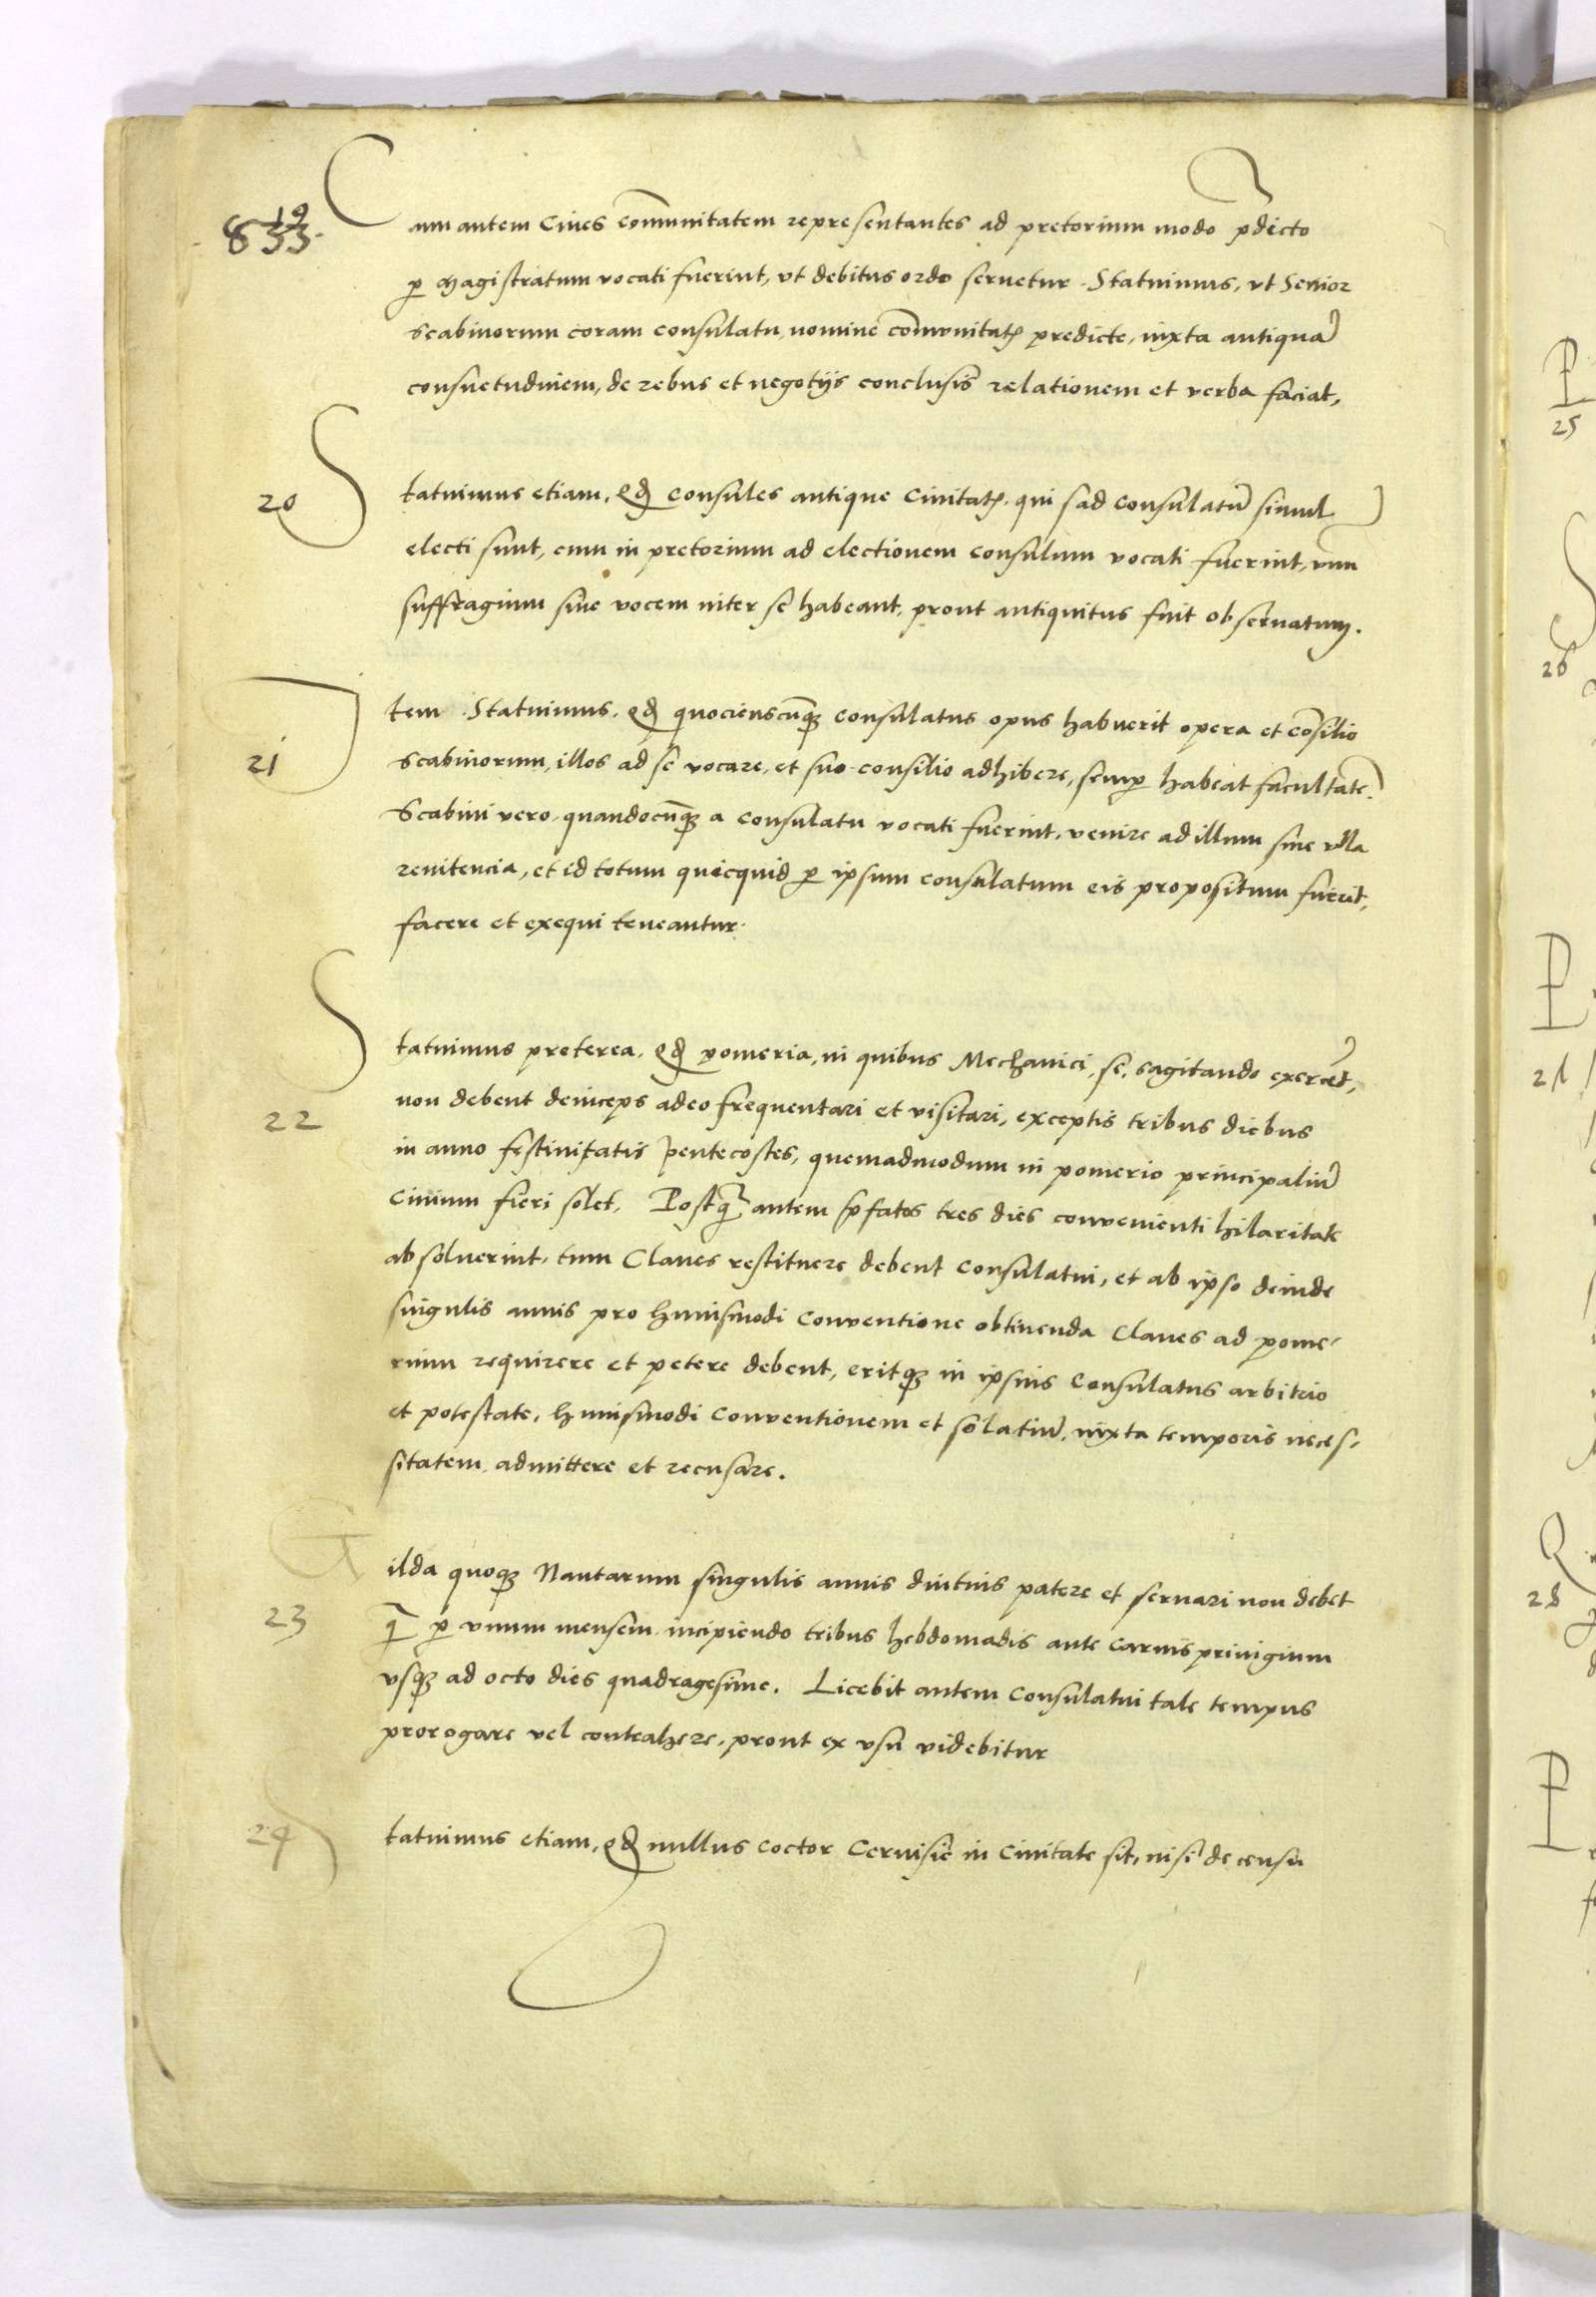 19
833.
Cum autem Ciues com̄unitatem representantes ad pretorium modo p̃dicto
ꝑ Magistratum vocati fuerint, vt debitus ordo seruetur. Statuimus, vt Senior
Scabinorum coram consulatu, nomine com̄vnitatꝭ predicte, iuxta antiquā
consuetudinem, de rebus et negotijs conclusis relationem et verba faciat,
20
Statuimus etiam, qđ consules antique Ciuitatꝭ, qui sad consulatū simul
electi sunt, cum in pretorium ad electionem consulum vocati fuerint, vnū
suffragium siue vocem inter se habeant, prout antiquitus fuit obseruatum.
21
Item Statuimus, qđ quocienscūqꝫ consulatus opus habuerit opera et cōsilio
Scabinorum, illos ad se vocare, et suo consilio adhibere, semꝑ habeat facultatē.
Scabini vero, quandocūqꝫ a consulatu vocati fuerint, venire ad illum sine vlla
renitencia, et id totum quicquid ꝑ ipsum consulatum eis propositum fuerit,
facere et exequi teneantur.
22
Statuimus preterea, qđ pomeria, in quibus Mechanici, se, sagitando exercēt,
non debent deinceps adeo frequentari et visitari, exceptis tribus diebus
in anno festiuitatis pentecostes, quemadmodum in pomerio principaliū
Ciuium fieri solet. Postq̄ autem p̃fatos tres dies convenienti hilaritate
absoluerint, tum Claues restituere debent consulatui, et ab ipso deinde
singulis annis pro huiusmodi conventione obtinenda Claues ad pome-
rium requirere et petere debent, eritqꝫ in ipsius consulatus arbitrio
et potestate, huiusmodi conventionem et solatiū, iuxta temporis neces-
sitatem, admittere et recusare.
23
Gilda quoqꝫ Nautarum singulis annis diutius patere et seruari non debet
q̄ ꝑ vnum mensem incipiendo tribus hebdomadis ante carnispriuigium
vsqꝫ ad octo dies quadragesime. Licebit autem consulatui tale tempus
prorogare vel contrahere, prout ex vsu videbitur
24
Statuimus etiam, qđ nullus coctor Ceruisie in Ciuitate sit, nisi de censu
P
25
26
P
27
Q
28
P